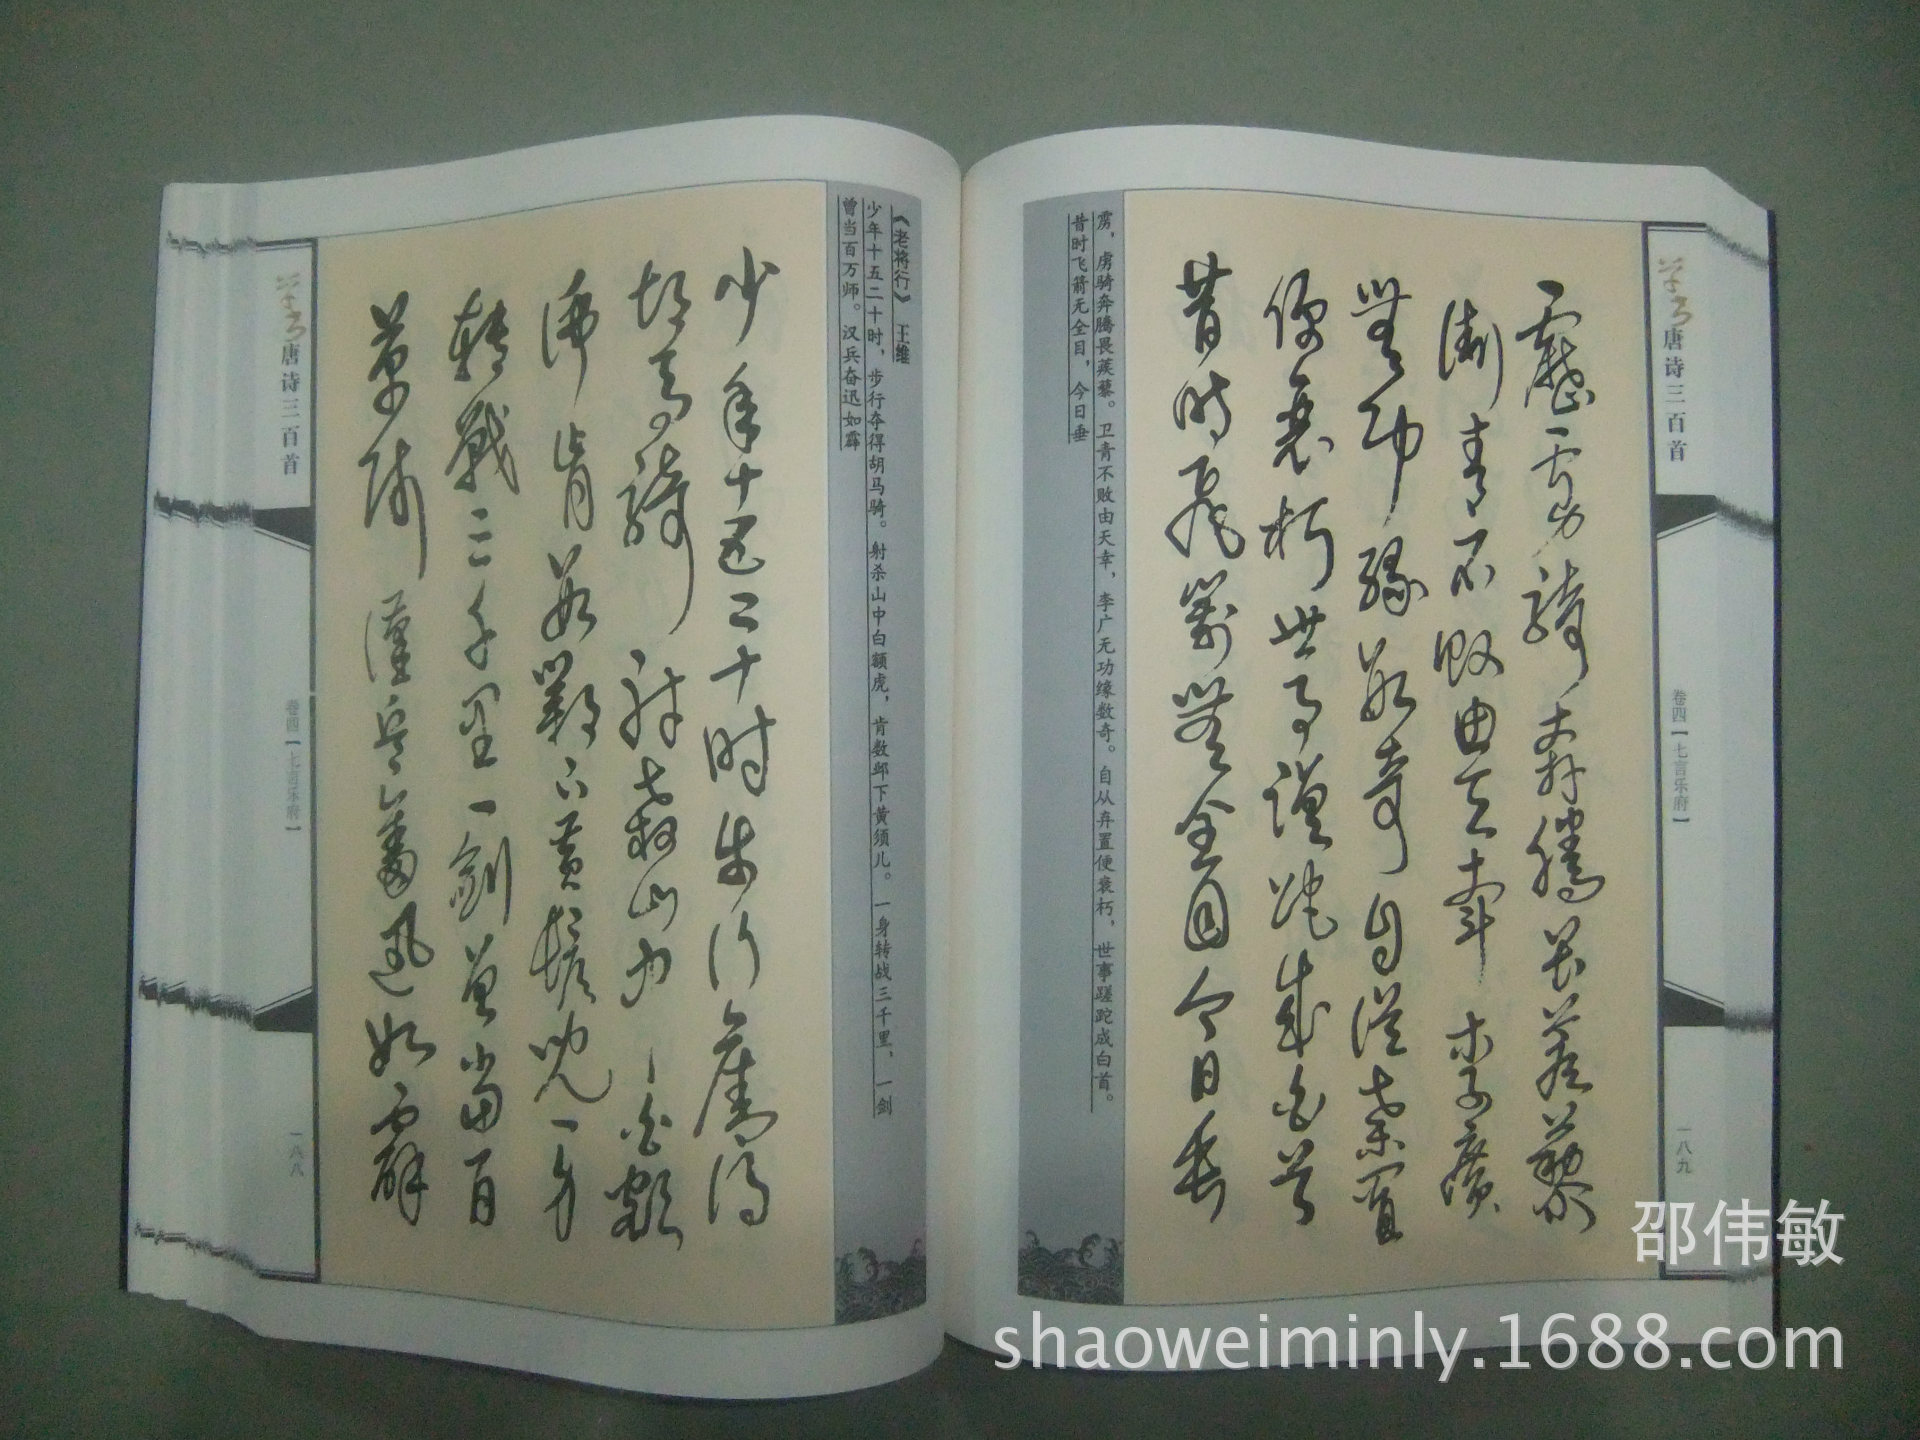 《老将行》 王维
少年十五二十时，步行夺得胡马骑。射杀山中白额虎，肯数邺下黄须儿。一身转战三千里，一剑
曾当百万师。汉兵奋迅如霹
少年十五二十時步行奪得
胡馬騎射殺山中白額
虎肯數鄴下黃鬚兒一身
轉戰三千里一劍曾當百
萬師漢兵奮迅如霹
草书唐诗三百首
卷四【七言乐府】
一八八
草书唐诗三百首
卷四【七言乐府】
一八九
靂虜騎奔騰畏蒺藜
衛青不敗由天幸李廣
無功緣數奇自從棄置
便衰朽世事蹉跎成白首
昔時飛箭無全目今日垂
雳，虏骑奔腾畏蒺藜。卫青不败由天幸，李广无功缘数奇。自从弃置便衰朽，世事蹉跎成白首。
昔时飞箭无全目，今日垂
邵伟敏
shaoweiminly.1688.com